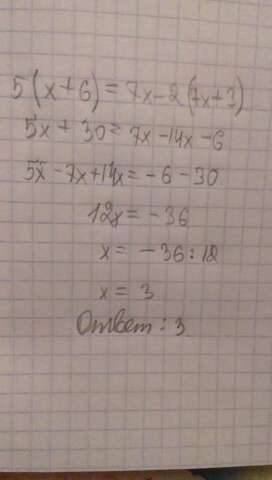 5(x+6)=7x-2(7x+3)
5x+30=7x-14x-6
5x-7x+14x=-6-30
12x=-36
x=-36:12
x=3
Ответ: 3